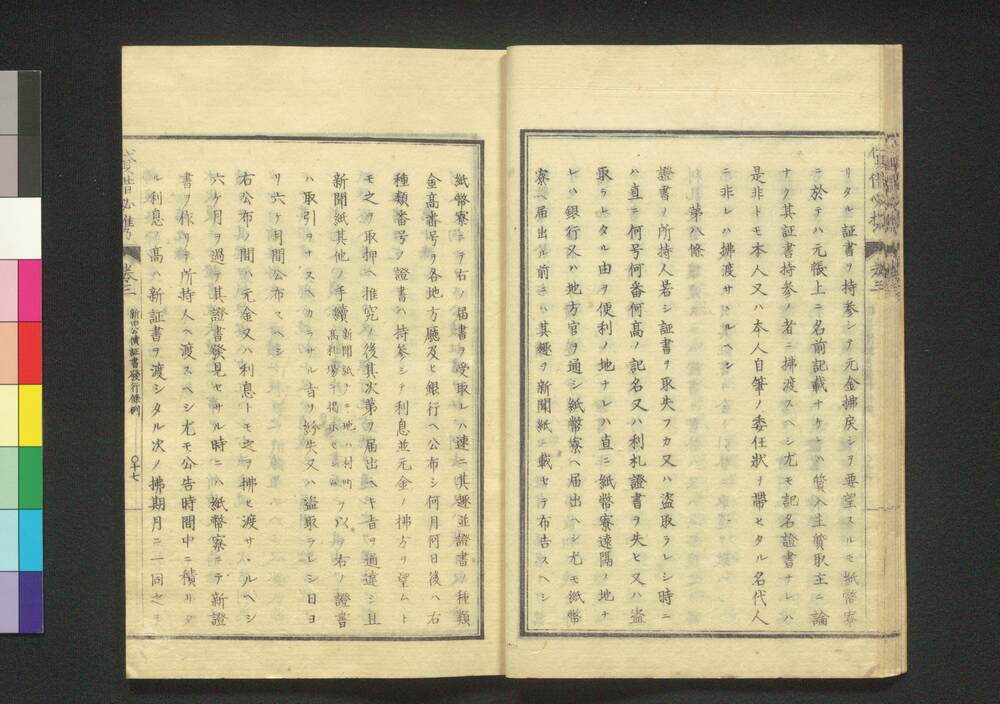 リタル証書ヲ持参シテ元金拂戻シヲ要望スルモ紙幣寮
ニ於テハ元帳上ニ名前記載ナケレハ質入主質取主ニ論
ナク其証書持参ノ者ニ拂渡スヘシ尤モ記名證書ナレハ
是非トモ本人又ハ本人自筆ノ委任状ヲ帯ヒタル名代人
ニ非レハ拂渡サヽルヘシ
第八條
證書ノ所持人若シ証書ヲ取失フカ又ハ盗取ラレシ時ニ
ハ直ニ何号何番何高ノ記名又ハ利札證書ヲ失ヒ又ハ盗
取ラレタル由ヲ便利ノ地ナレハ直ニ紙幣寮遠隔ノ地ナ
レハ銀行又ハ地方官ヲ通シ紙幣寮ヘ届出ヘシ尤モ紙幣
寮ヘ届出ル前ニハ其趣ヲ新聞紙ニ載セテ布告スヘシ
紙幣寮ニテ右ノ届書ヲ受取レハ速ニ其趣並證書ノ種類
金高番号ヲ各地方廳及ヒ銀行ヘ公布シ何月何日後ハ右
種類番号ノ證書ハ持参シテ利息並元金ノ拂方ヲ望ムト
モ之ヲ取押ヘ推究ノ後其次第ヲ届出ヘキ旨ヲ通達シ且
新聞紙其他ノ手續新聞紙ナキ地ハ村町高札場等ニ掲示セシムヲ以テ右ノ證書
ハ取引ヲナスヘカラサル旨ヲ紛失又ハ盗取ラレシ日ヨ
リ六ケ月間公布スヘシ
右公布ノ間ハ元金又ハ利息トモ之ヲ拂ヒ渡サヽルヘシ
六ケ月ヲ過テ其證書發見セサル時ニハ紙幣寮ニテ新證
書ヲ作リテ所持人ヘ渡スヘシ尤モ公告時間中ニ積リタ
ル利息ノ高ハ新証書ヲ渡シタル次ノ拂期月ニ一同之ヲ
卷三
新旧公債証書發行條例
〇十七